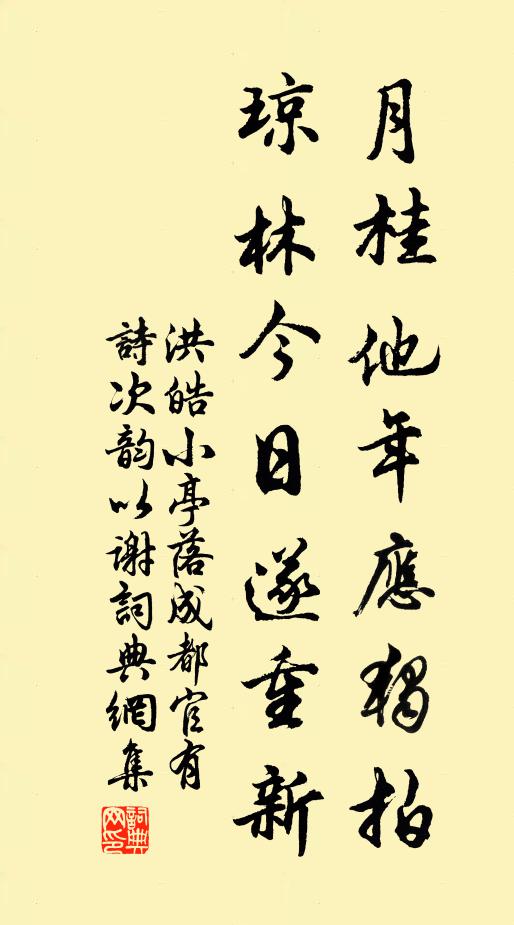 月桂他年應獨拍
琼林今日遂重新
洪皓小亭落成都官有
詩次韵以谢詞典網集
詞典网印